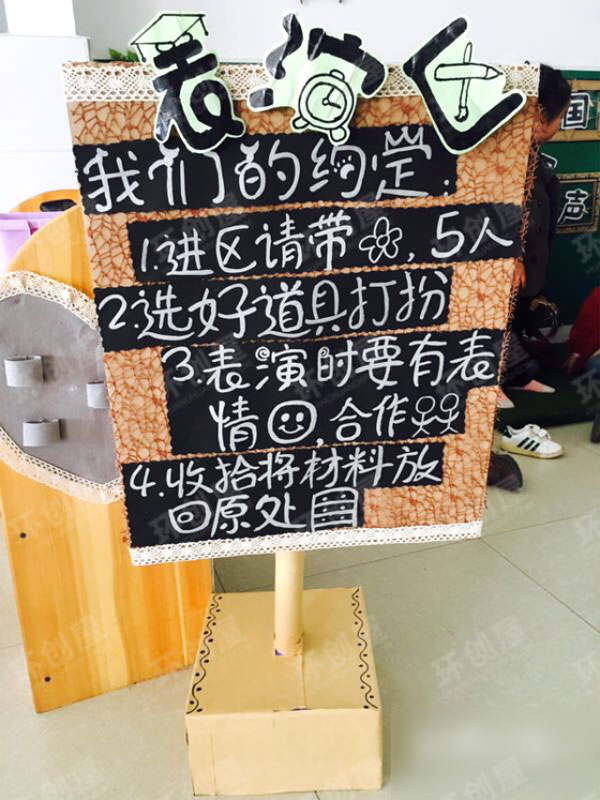 表演区
我们的约定:
1.进区请带 , 5人
2.选好道具打扮
3.表演时要有表
情 , 合作
4.收拾将材料放
回原处
国
声
环创屋